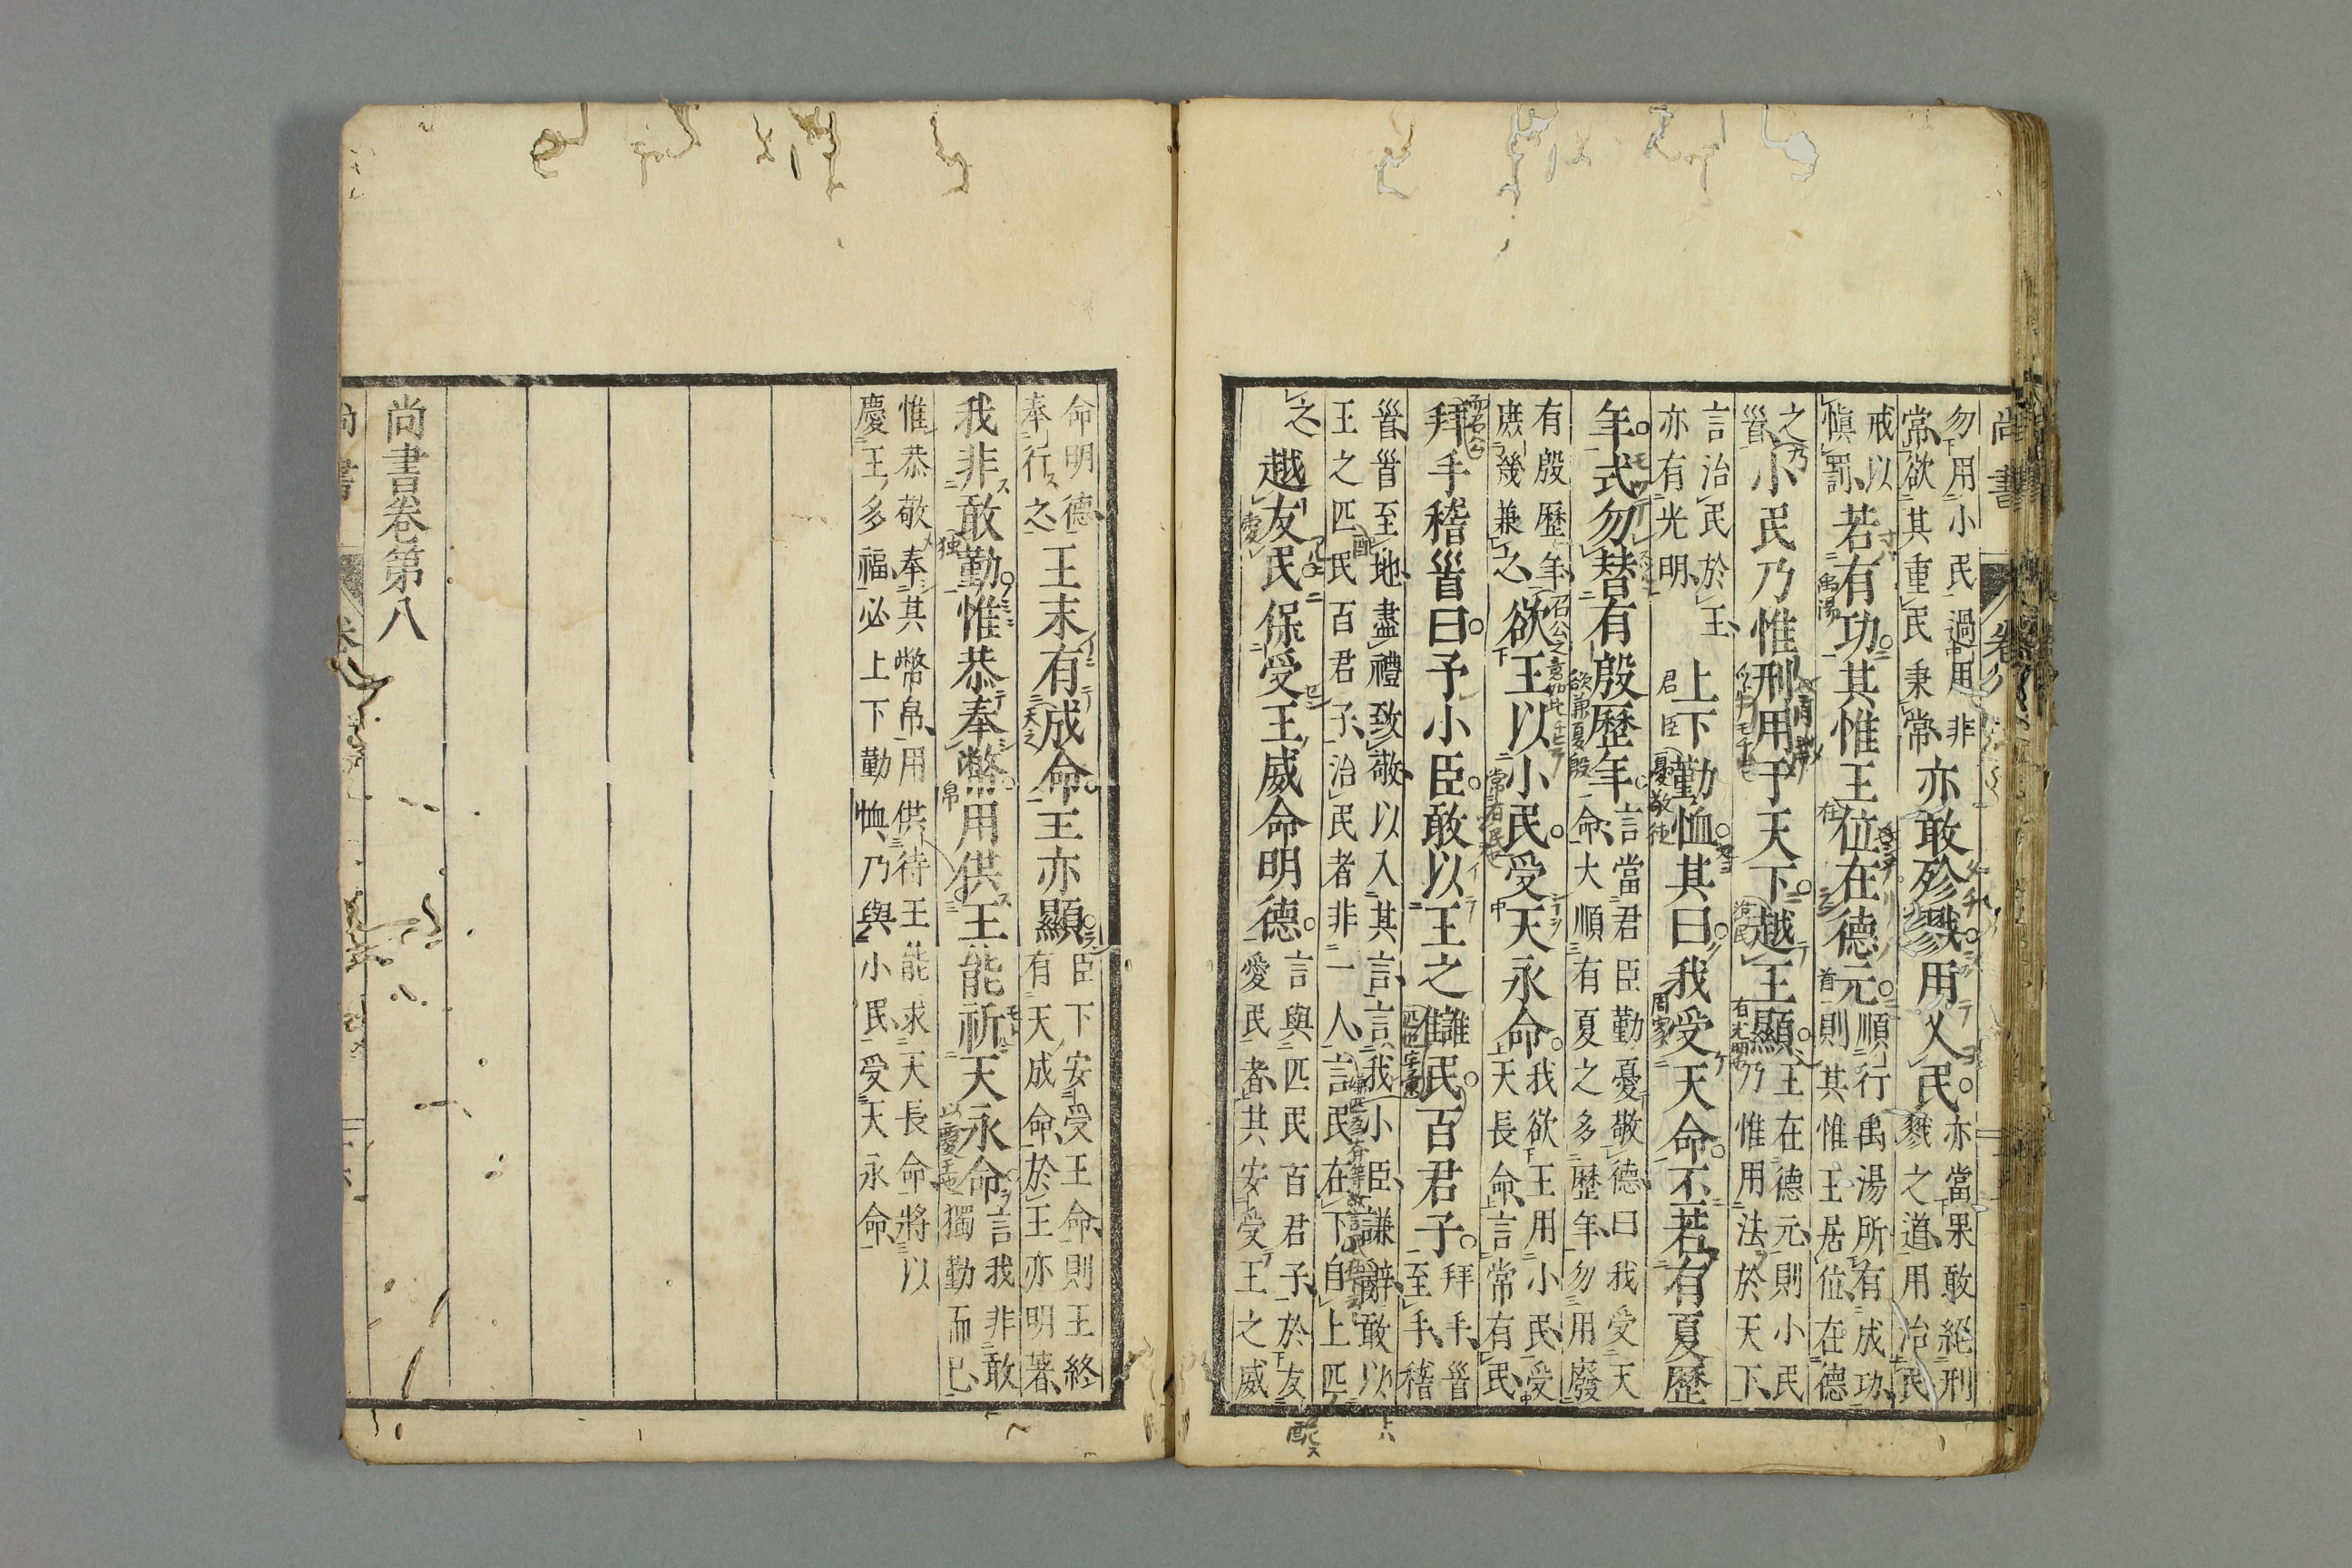 尚書
卷八
勿用小民過用非
常欲其重民秉常
亦敢殄戮用乂民
亦當果敢絕刑
戮之道用治民
戒以
慎罰
若有功其惟王位在德元
順行禹湯所有成功
則其惟王居位在德
之
首
小民乃惟刑用于天下越王顯
王在德元則小民
乃惟用法於天下
言治民於王
亦有光明
上下勤恤其曰我受天命丕若有夏歷
年式勿替有殷歷年
言當君臣勤憂敬德曰我受天
命大順有夏之多歷年勿用廢
有殷歷年
庶幾兼之
欲王以小民受天永命
我欲王用小民受
天長命言常有民
拜手稽首曰予小臣敢以王之讎民百君子
拜手首
至手稽
首首至地盡禮致敬以入其言言我小臣謙辭敢以
王之匹民百君子治民者非一人言民在下自上匹
之
越友民保受王威命明德
言與匹民百君子於友
愛民者其安受王之威
命明德
奉行之
王末有成命王亦顯
臣下安受王命則王終
有天成命於王亦明著
我非敢勤惟恭奉幣用供王能祈天永命
言我非敢
獨勤而已
惟恭敬奉其幣帛用供待王能求天長命將以
慶王多福必上下勤恤乃與小民受天永命
尚書卷第八